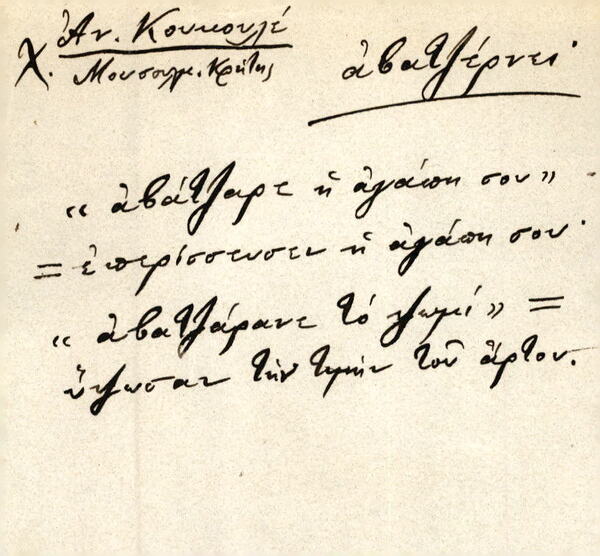 Χ. Ἀν. Κουκουλέ
Μουσουλμ. Κρήτης
ἀβατζέρνει·
« ἀβάτζαρε ἡ ἀγάπη σου»
= ἐπερίσσευσεν ἡ ἀγάπη σου·
« ἀβατζάρανε τό ψωμί» =
ὕψωσαν τήν τιμήν τοῦ ἄρτου.